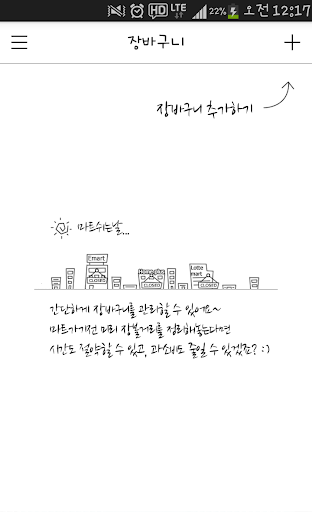 HD LTE 22% 오전 12:17
장바구니
장바구니 추가하기
마트쉬는날...
Emert
CLOSED
Home plus
CLOSED
Lotte
mart
CLOSED
간단하게 장바구니를 관리할 수 있어요~
마트가기전 미리 장볼거리를 정리해놓는다면
시간도 절약할 수 있고, 과소비도 줄일 수 있겠죠? :)